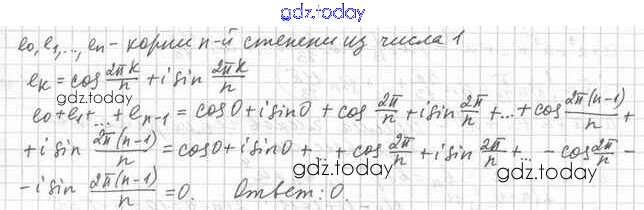 gdz.today
e₀, e₁, ..., eₙ - корни n-й степени из числа 1
eₖ = cos 2πk/n + i sin 2πk/n
gdz.today
e₀ + e₁ + ... + eₙ₋₁ = cos0 + i sin0 + cos 2π/n + i sin 2π/n + ... + cos 2π(n-1)/n +
+ i sin 2π(n-1)/n = cos0 + i sin0 + ... + cos 2π/n + i sin 2π/n + ... - cos 2π/n -
gdz.today gdz.today
- i sin 2π(n-1)/n = 0. Ответ: 0.